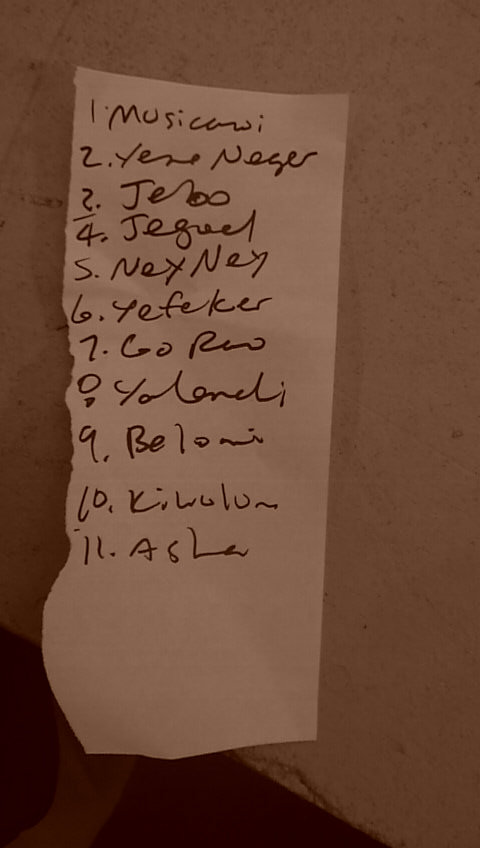 1. Musicawi
2. Yene Neger
3. Jeboo
4. Jegnael
5. Ney Ney
6. Yefeker
7. Go Reo
8. Yolendi
9. Belomi
10. Kiwolom
11. Asha